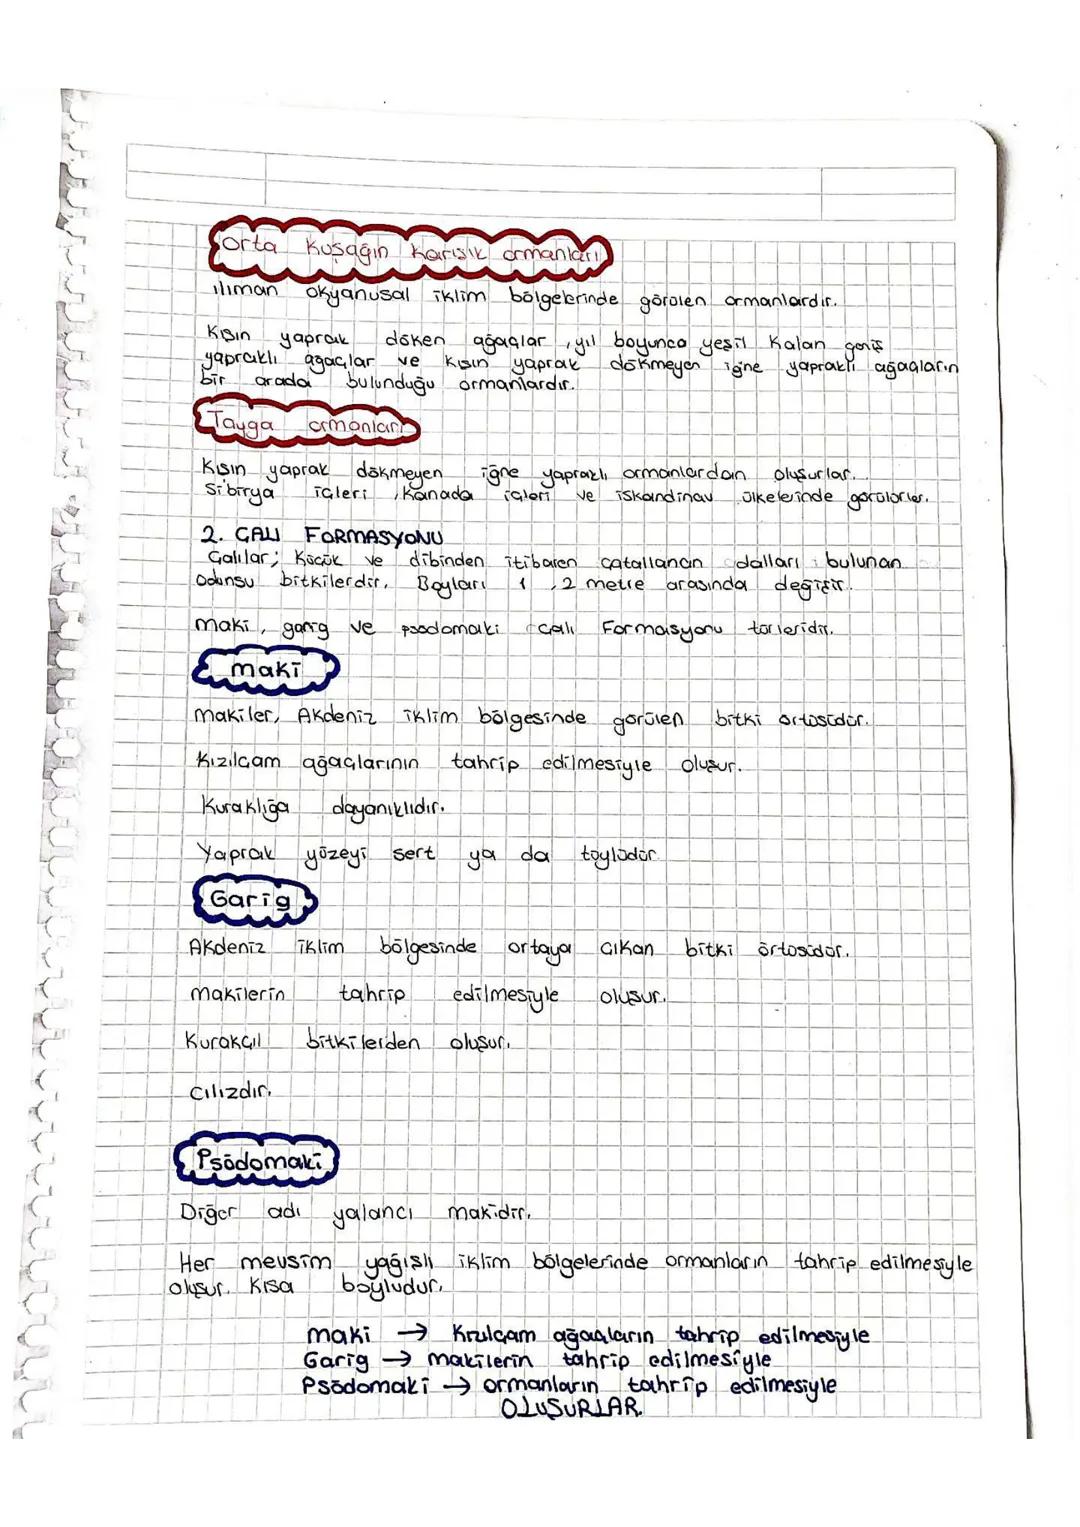 Orta Kuşağın Karışık ormanları
ılıman okyanusal iklim bölgelerinde görülen ormanlardır.
Kışın yaprak döken ağaçlar, yıl boyunca yeşil kalan geniş
yapraklı ağaçlar ve kışın yaprak dökmeyen iğne yapraklı ağaçların
bir arada bulunduğu ormanlardır.
Tayga ormanları
Kışın yaprak dökmeyen iğne yapraklı ormanlardan oluşurlar.
Sibirya içleri, Kanada içleri ve İskandinav ülkelerinde görülürler.
2. ÇALI FORMASYONU
Çalılar; Küçük ve dibinden itibaren çatallanan dalları bulunan
odunsu bitkilerdir. Boyları 1, 2 metre arasında değişir.
maki, garig ve psödomaki çalı Formasyonu türleridir.
maki
makiler, Akdeniz iklim bölgesinde görülen bitki örtüsüdür.
Kızılçam ağaçlarının tahrip edilmesiyle oluşur.
Kuraklığa dayanıklıdır.
Yaprak yüzeyi sert ya da tüylüdür.
Garig
Akdeniz iklim bölgesinde ortaya çıkan bitki örtüsüdür.
makilerin tahrip edilmesiyle oluşur.
Kurakçıl bitkilerden oluşur.
cılızdır.
Psödomaki
Diğer adı yalancı makidir.
Her mevsim yağışlı iklim bölgelerinde ormanların tahrip edilmesiyle
oluşur. Kısa boyludur.
maki → Kızılçam ağaçların tahrip edilmesiyle
Garig → makilerin tahrip edilmesiyle
Psödomaki → ormanların tahrip edilmesiyle
OLUŞURLAR.